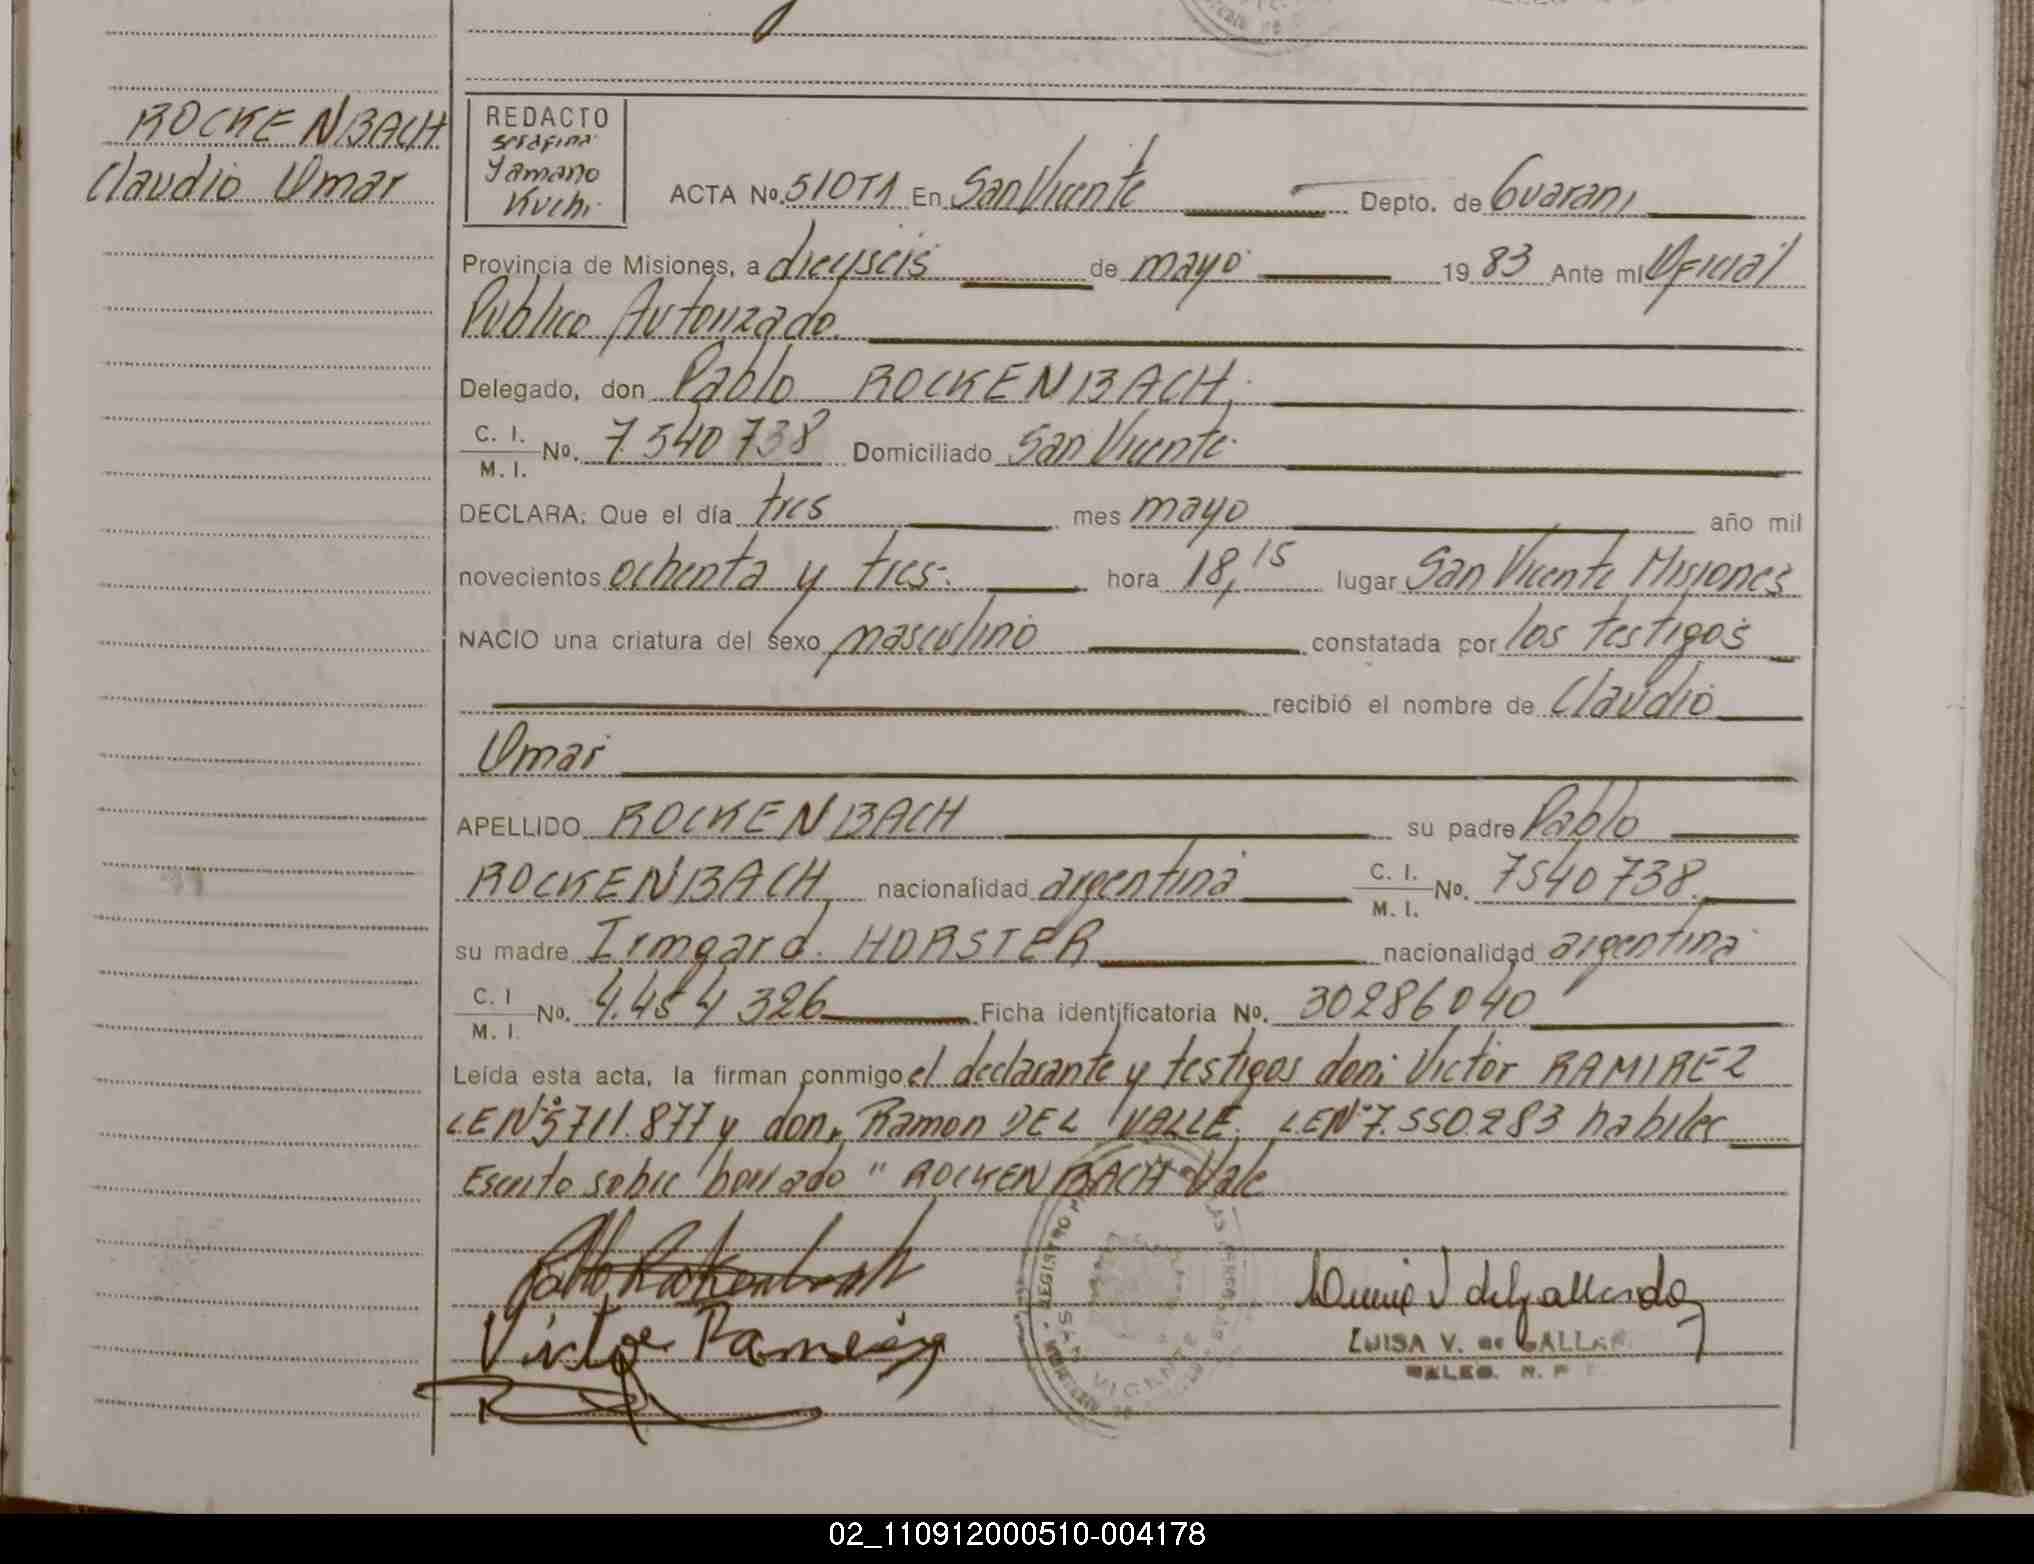 ROCKENBACH
Claudio Omar
REDACTO
Serafina
Yamano
Kuchi
ACTA Nº. 510T1 En San Vicente Depto. de Guarani
Provincia de Misiones, a dieyseis de mayo 19 83 Ante mi Oficial
Publico Autorizado
Delegado, don Pablo ROCKENBACH,
C. I.
M. I. Nº. 7.540738 Domiciliado San Vicente
DECLARA: Que el día tres mes mayo año mil
novecientos ochenta y tres. hora 18,15 lugar San Vicente Misiones
NACIO una criatura del sexo masculino constatada por los testigos
recibió el nombre de Claudio
Omar
APELLIDO ROCKENBACH su padre Pablo
ROCKENBACH nacionalidad argentina C. I.
M. I. Nº. 7540738.
su madre Irmgard. HORSTER nacionalidad argentina
C. I
M. I. Nº. 4.454326 Ficha identificatoria Nº. 30286040
Leída esta acta, la firman conmigo el declarante y testigos don; Victor RAMIREZ
LENº5711.877 y don, Ramon DEL VALLE. LENº7.550.283 habiles
Escrito sobre borrado " ROCKENBACH Vale
Pablo Rockenbach
Victor Ramirez
REGISTRO
SAN VICENTE
LUISA V. de GALLAR